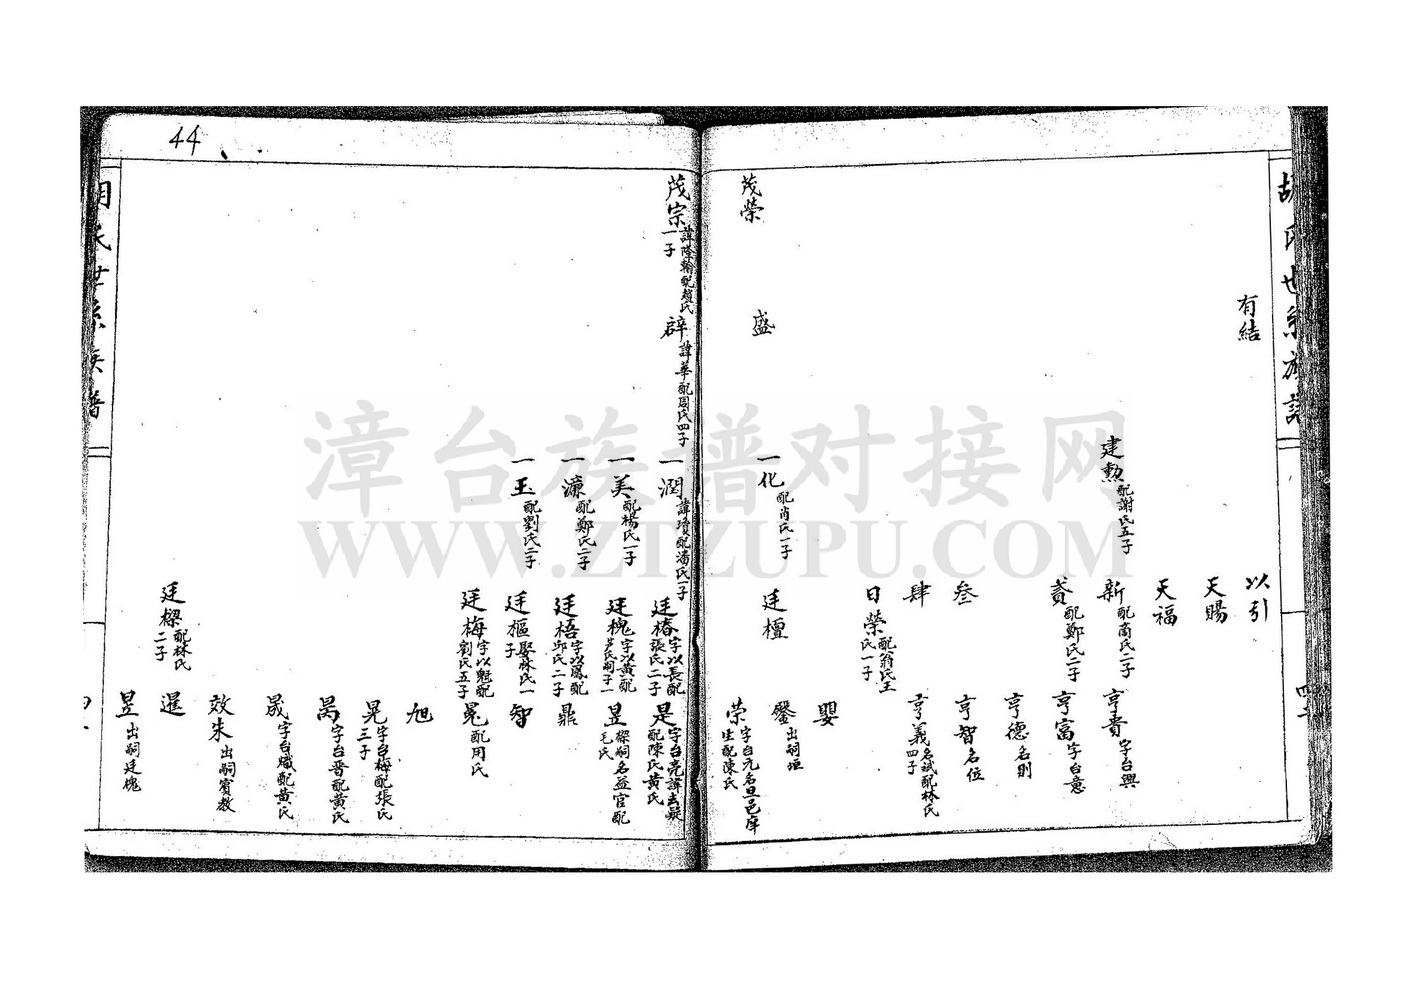 胡氏世系族譜
有結
以引
天賜
天福
建勲 配謝氏五子
新 配商氏二子
亨貴 字台興
貳 配鄭氏二子
亨富 字台意
亨德 名則
叁
亨智 名位
肆
亨義 名試配林氏四子
日榮 配翁氏王氏一子
嬰
茂榮
盛
一化 配肖氏一子
廷檀
鑒 出嗣垣
榮 字台元名旦邑庠生配陳氏
茂宗 諱隆翰配趙氏一子
辟 諱華配周氏四子
一潤 諱瓆配潘氏一子
廷椿 字以長配張氏二子
是 字台亮諱去疑配陳氏黄氏
一美 配楊氏一子
廷槐 字以黄配芦氏嗣子一
昱 樑嗣名益官配毛氏
一濂 配鄭氏二子
廷梧 字以鳳配邱氏二子
鼎
一玉 配劉氏二子
廷樞 娶林氏一子
智
廷梅 字以魁配劉氏五子
冕 配用氏
旭
晃 字台梅配張氏三子
昺 字台晋配黄氏
晟 字台熾配黄氏
效朱 出嗣賓教
廷樑 配林氏二子
暹
昱 出嗣廷槐
胡氏世系族譜
44
漳台族谱对接网
WWW.ZTZUPU.COM